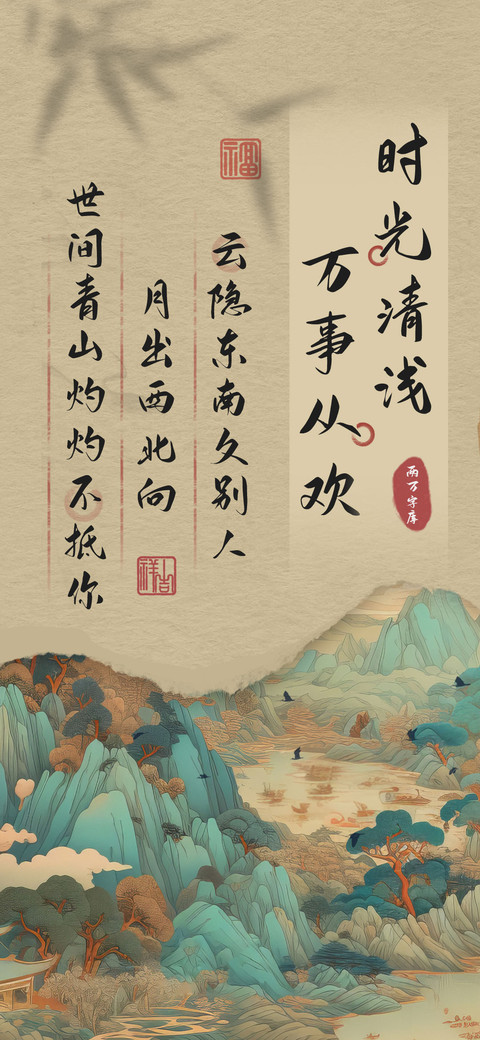 时光清浅
万事从欢
两万字库
福
云隐东南久别人
月出西北向
吉祥
世间青山灼灼不抵你